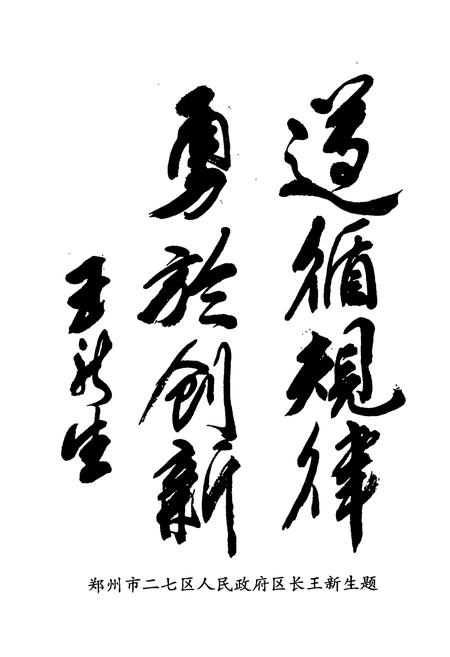 遵循规律
勇於创新
王新生
郑州市二七区人民政府区长王新生题